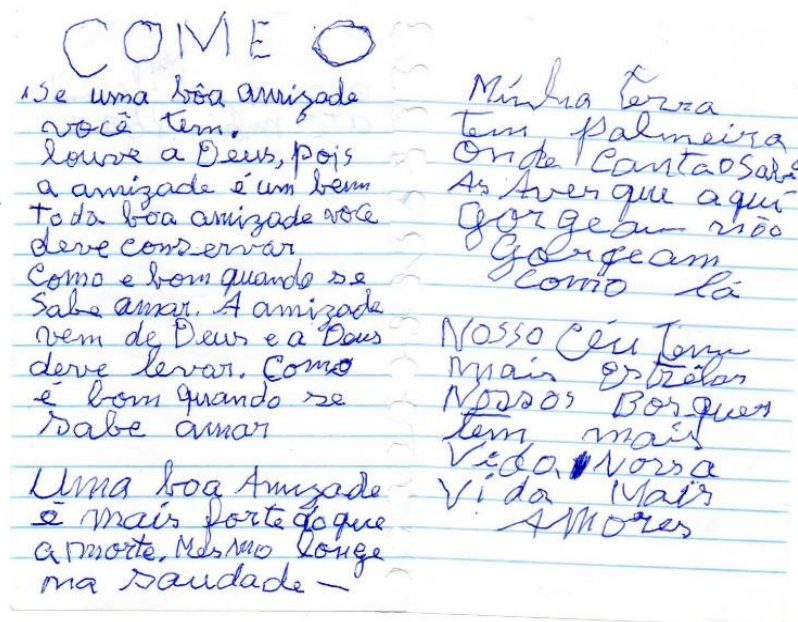 COME O
Se uma bôa amizade
você tem.
louve a Deus, pois
a amizade é um bem
Toda bôa amizade voce
deve conservar
Como e bom quando se
Sabe amar. A amizade
vem de Deus e a Deus
deve levar. Como
é bom quando se
sabe amar
Uma boa Amizade
é mais forte do que
a morte. Mesmo longe
na saudade —
Minha terra
tem palmeira
Onde Canta o Sabi
As Aves que aqui
Gorgeam não
Gorgeam
como lá
Nosso Céu Tem
mais estrêlas
Nossos Bosques
tem mais
Vida, Nossa
Vida Mais
AMores